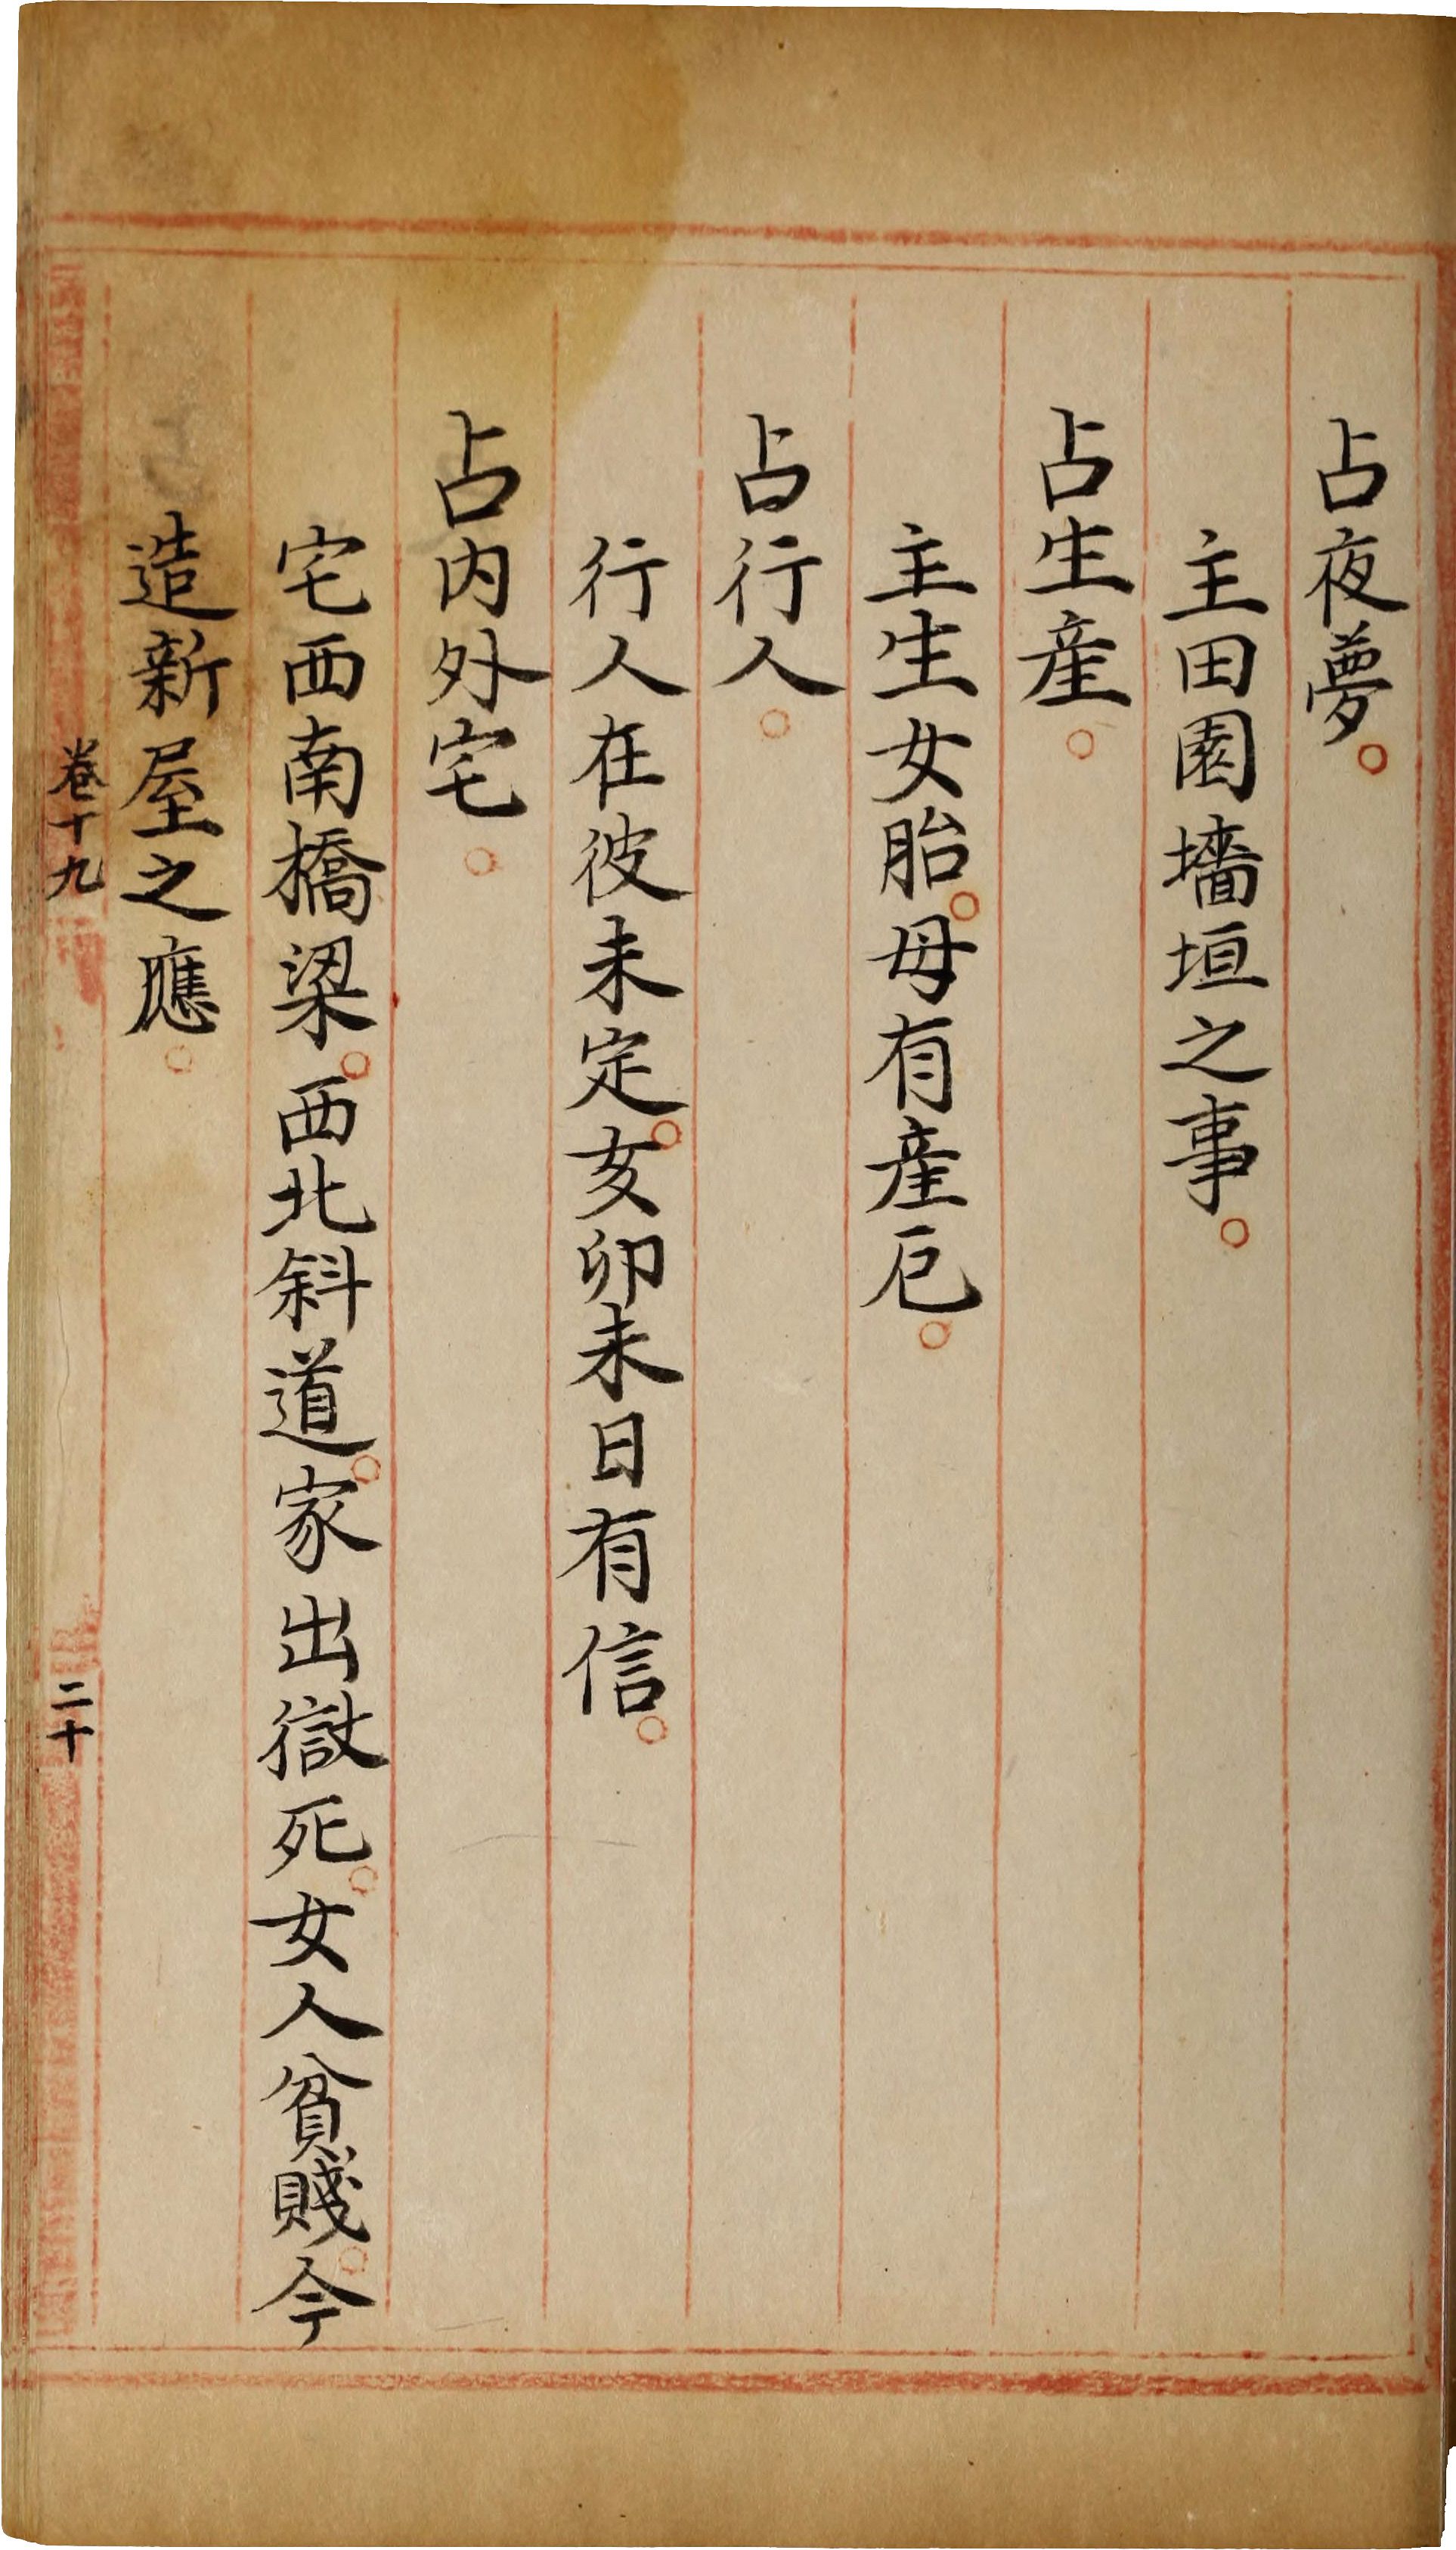 占夜夢。
主田園墻垣之事。
占生産。
主生女胎。母有産厄。
占行人。
行人在彼未定。亥卯未日有信。
占内外宅。
宅西南橋梁。西北斜道。家出獄死。女人貧賤。今
造新屋之應。
卷十九
二十